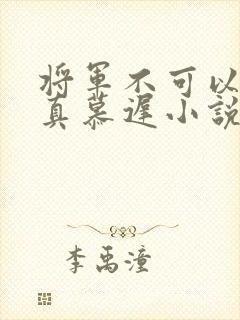 将军不可以
真慕遲小說
李禹潼